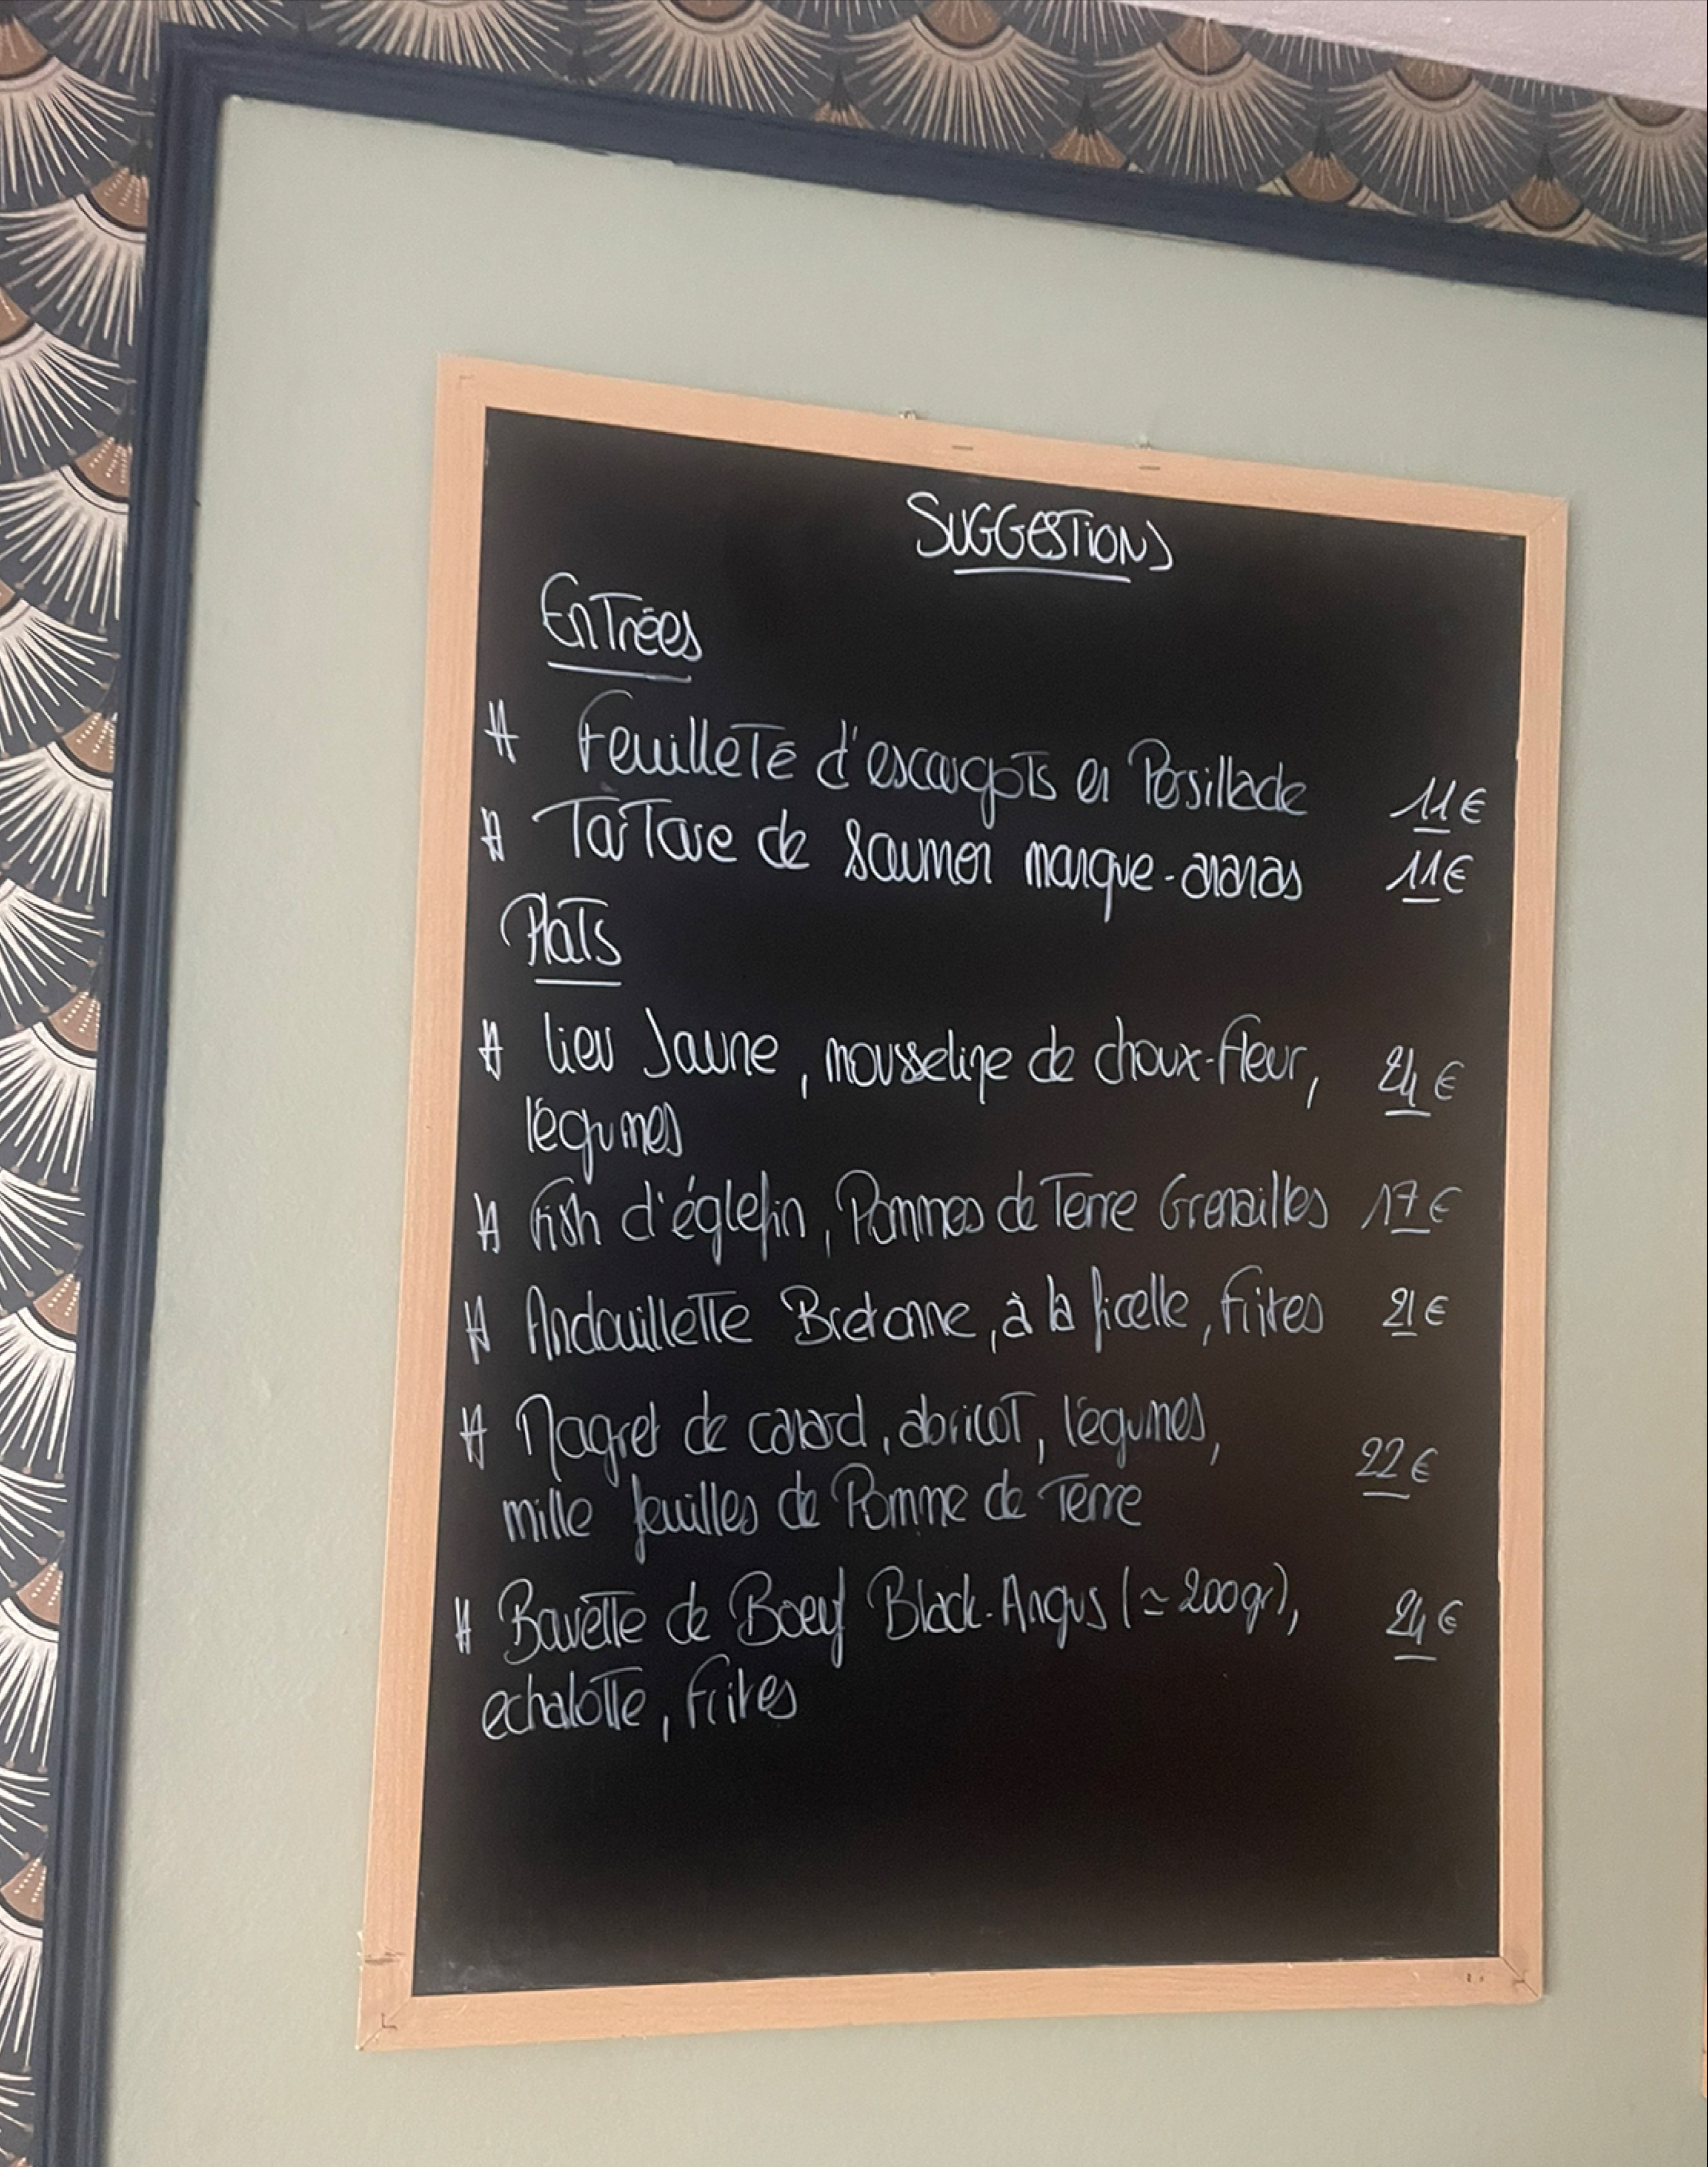 SUGGESTIONS
Entrées
# Feuilleté d'escargots en Persillade 11€
# Tartare de saumon mangue-ananas 11€
Plats
# lieu Jaune, mousseline de choux-fleur, 24€
légumes
# Fish d'églefin, Pommes de Terre Grenailles 17€
# Andouillette Bretonne, à la ficelle, frites 21€
# Magret de canard, abricot, légumes,
mille feuilles de Pomme de Terre 22€
# Bavette de Boeuf Black-Angus (≃200gr), 24€
echalotte, frites